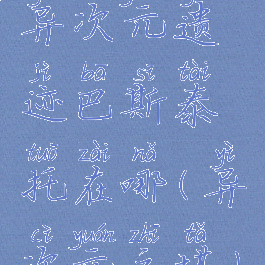 异次元遗
jì bā sī tài
迹巴斯泰
tuō zài nǎ yì
托在哪(异
cì yuán zhī tǎ